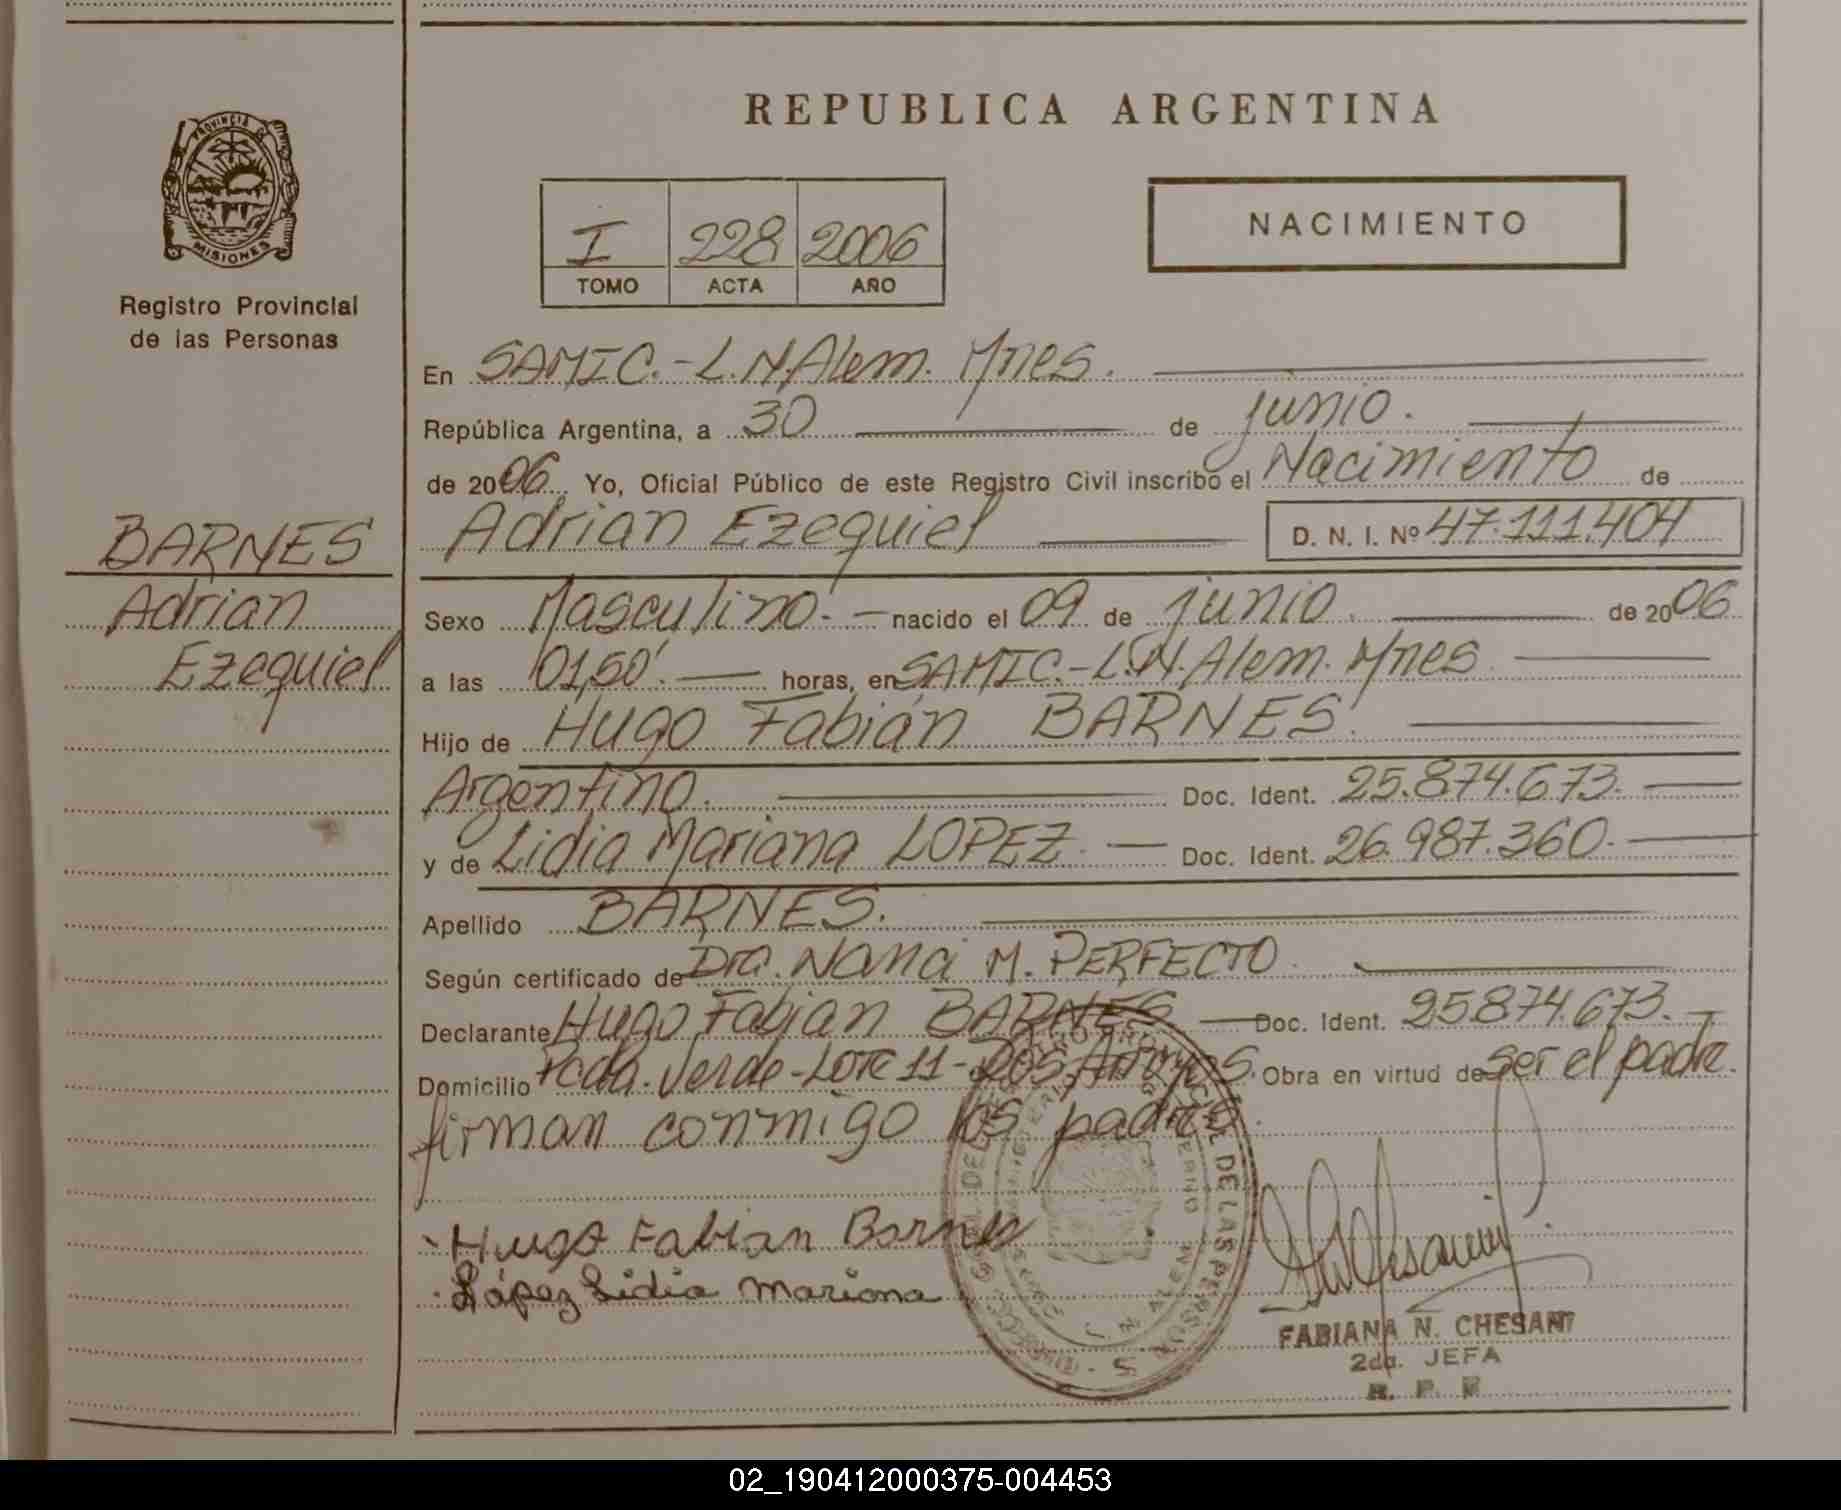 REPUBLICA ARGENTINA
PROVINCIA DE
MISIONES
Registro Provincial
de las Personas
I 228 2006
TOMO ACTA AÑO
NACIMIENTO
En SAMIC.-L.N.Alem. Mnes.
República Argentina, a 30 de junio.
de 2006. Yo, Oficial Público de este Registro Civil inscribo el Nacimiento de
BARNES
Adrian
Ezequiel
Adrian Ezequiel D. N. I. Nº 47.111.404
Sexo Masculino.- nacido el 09 de junio. de 2006
a las 01,50'. horas, en SAMIC.-L.N.Alem. Mnes
Hijo de Hugo Fabián BARNES.
Argentino. Doc. Ident. 25.874.673.
y de Lidia Mariana LOPEZ. Doc. Ident. 26.987.360.
Apellido BARNES.
Según certificado de Dra. Nanci M. PERFECTO.
Declarante Hugo Fabian BARNES Doc. Ident. 25874.673.
Domicilio Pcda. Verde-LOTE 11-Dos Arroyos. Obra en virtud de ser el padre.
firman conmigo los padres.
Hugo Fabian Barnes
López Lidia Mariana
DE LAS PERSONAS
FABIANA N. CHESANI
2da. JEFA
R. P. P
02_190412000375-004453